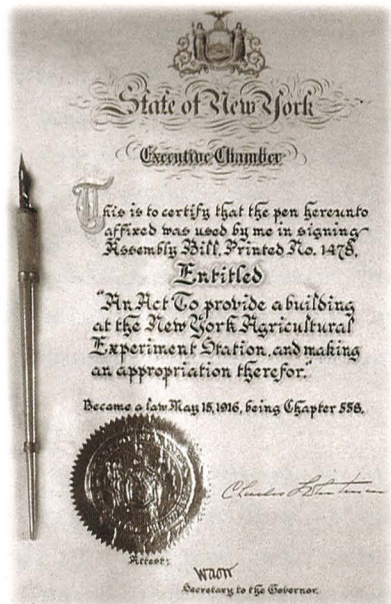 State of New York
Executive Chamber
This is to certify that the pen hereunto
affixed was used by me in signing
Assembly Bill, Printed No. 1478,
Entitled
"An Act To provide a building
at the New York Agricultural
Experiment Station, and making
an appropriation therefor."
Became a law May 15, 1916, being Chapter 558.
Charles
Attest:
Secretary to the Governor.